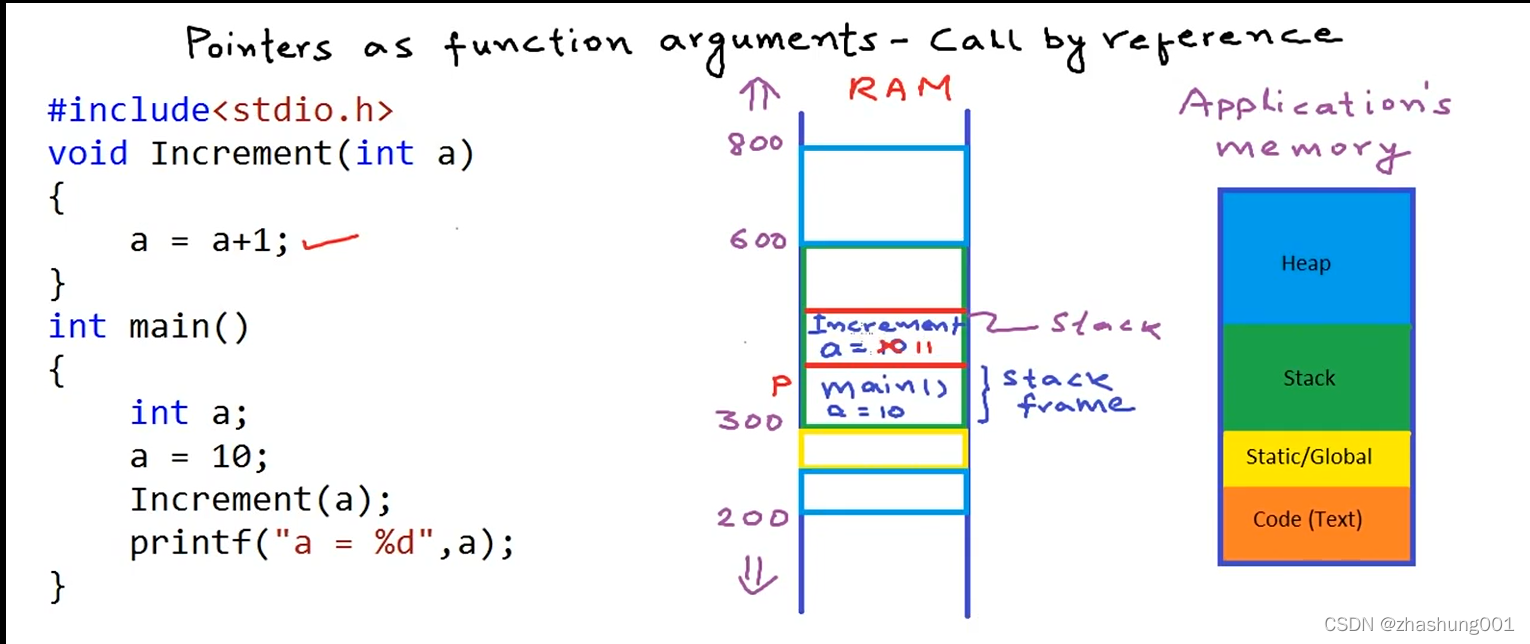 Pointers as function arguments - Call by reference
#include<stdio.h>
void Increment(int a)
{
a = a+1;
}
int main()
{
int a;
a = 10;
Increment(a);
printf("a = %d",a);
}
RAM
800
600
Increment
a = 10 11
Stack
P
main()
a = 10
stack
frame
300
200
Application's
memory
Heap
Stack
Static/Global
Code (Text)
CSDN @zhashung001